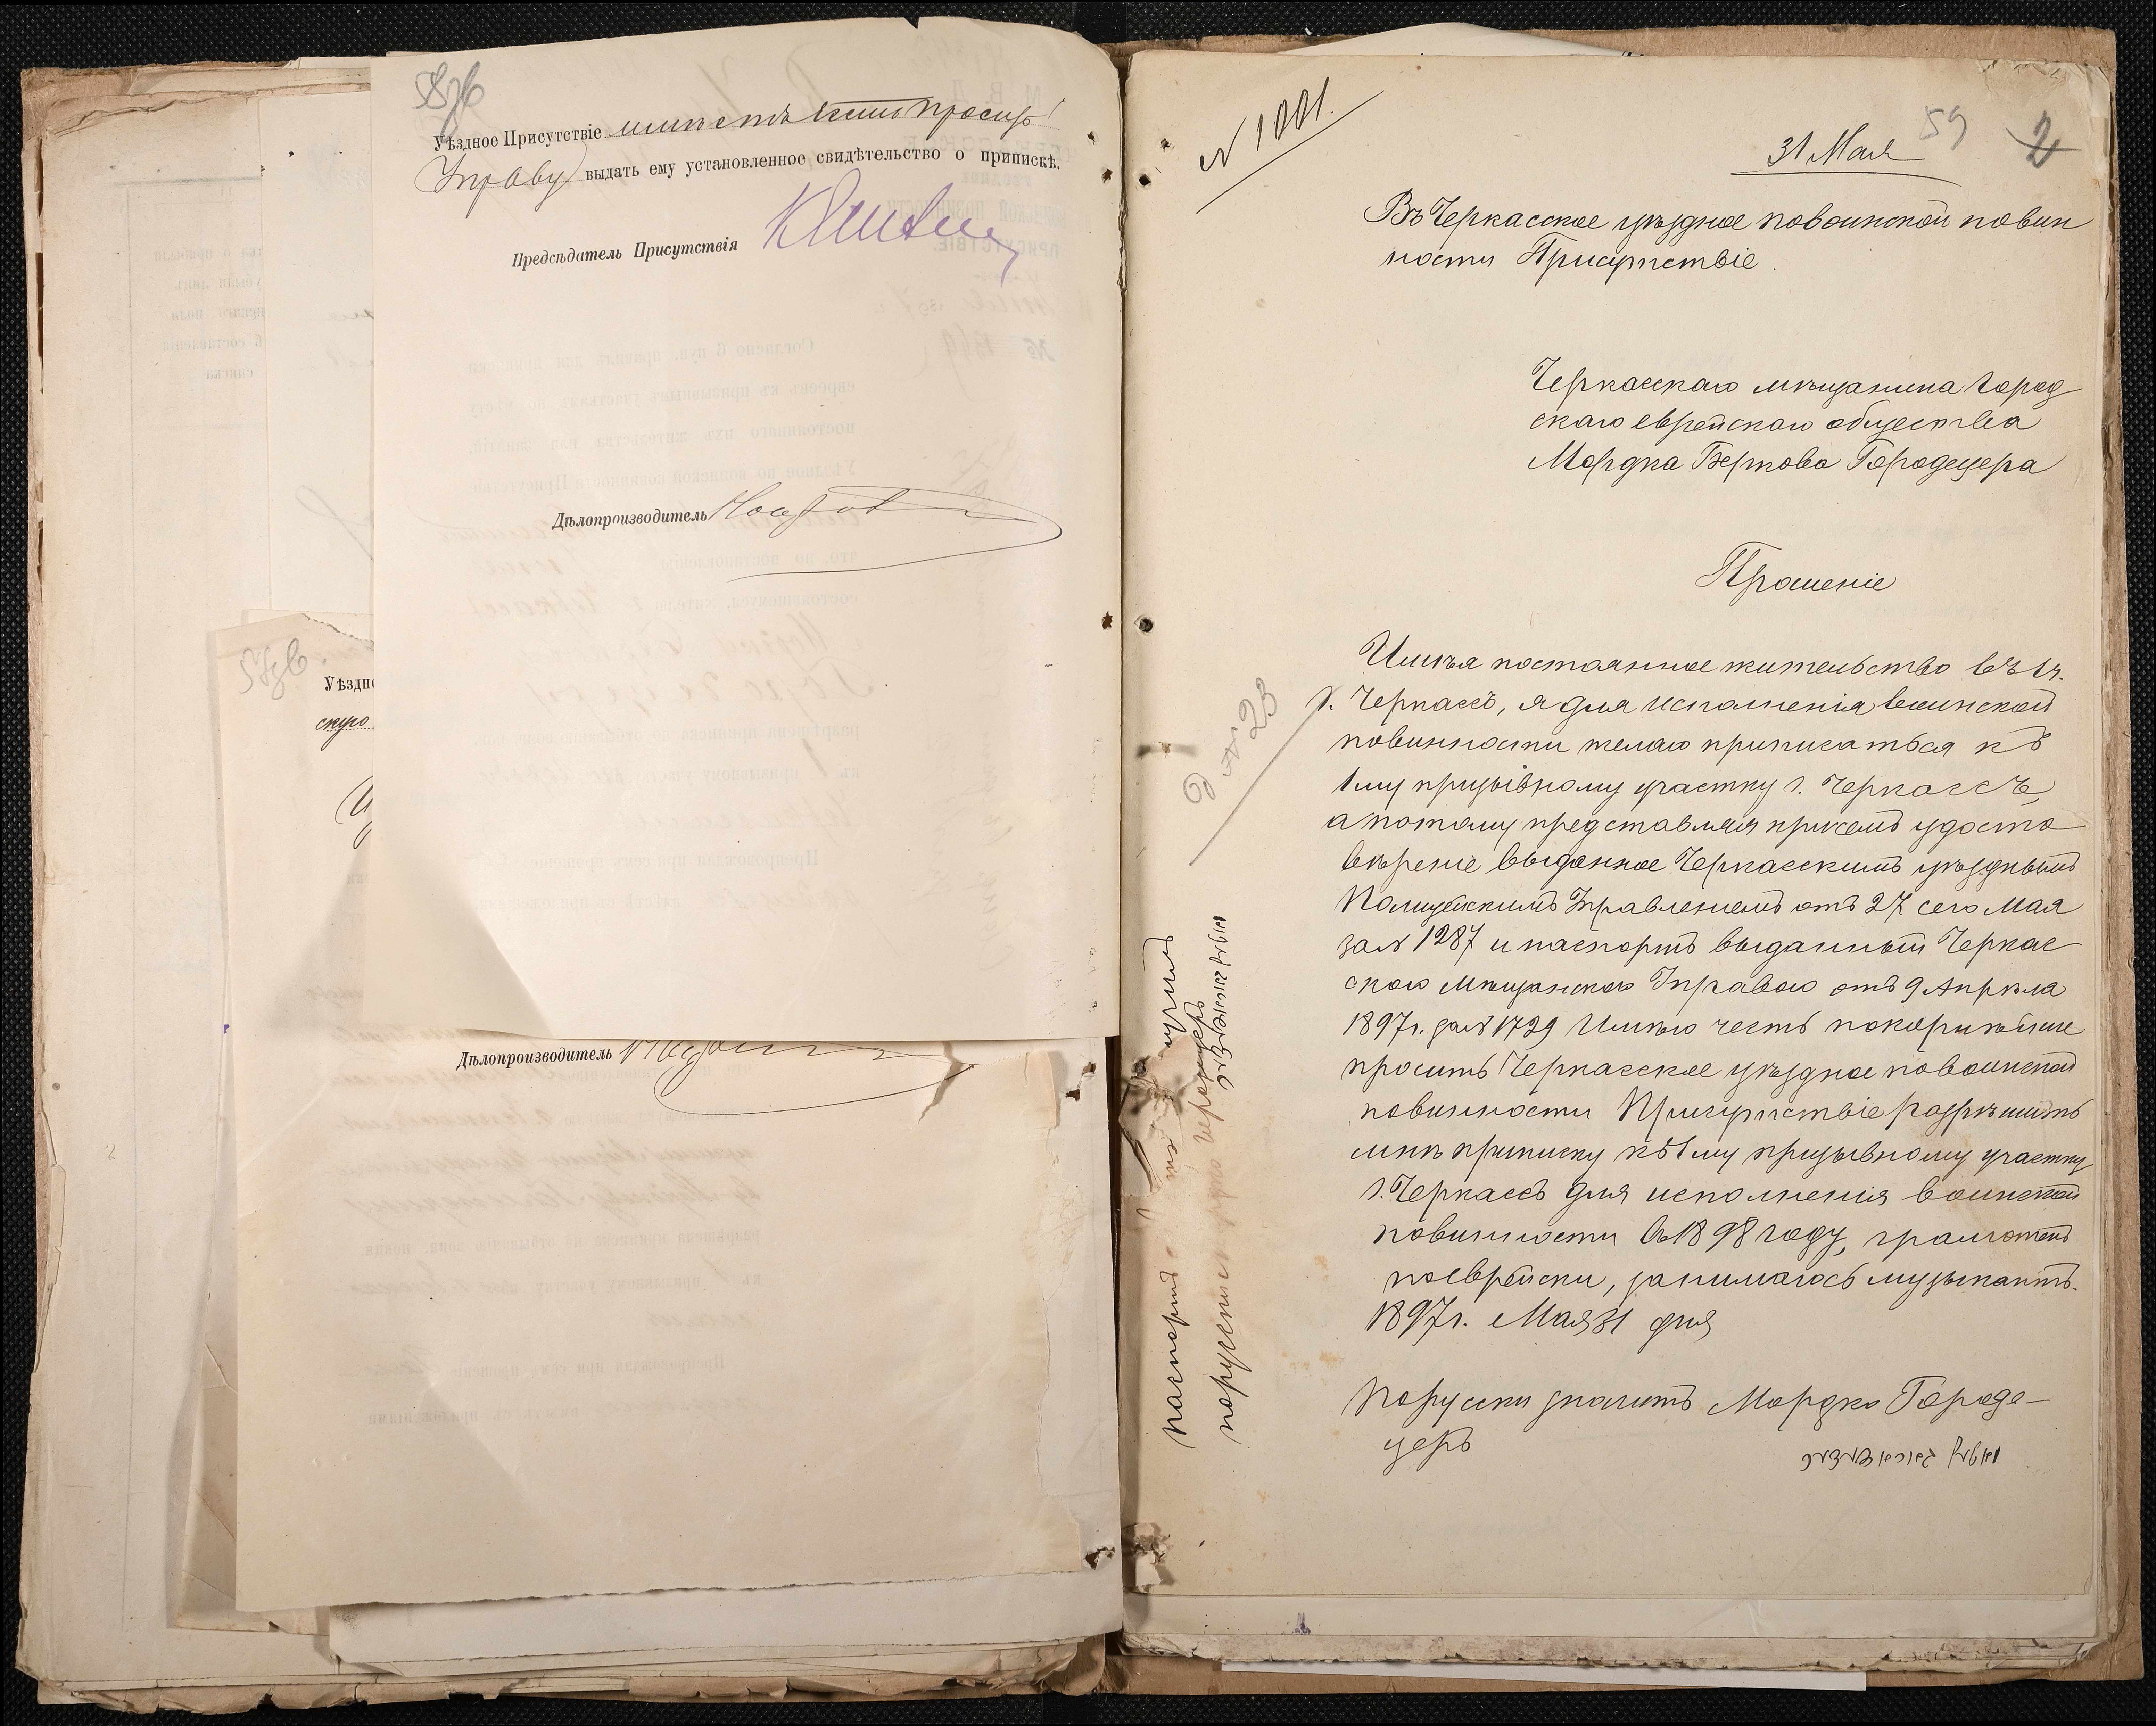 Уѣздное Присутствіе имѣетъ честь просить
Управу выдать ему установленное свидѣтельство о припискѣ.
Предсѣдатель Присутствія
Дѣлопроизводитель
Уѣздн
скую
Дѣлопроизводитель
N 1881.
31 Мая
59
2
Въ Черкасское уѣздное повоинской повин
ности Присутствіе.
Черкасскаго мѣщанина город
скаго еврейскаго общества
Мордка Беркова Городецера
Прошеніе
Имѣя постоянное жительство въ 1ч.
г. Черкассъ, я для исполненія воинской
повинности желаю приписаться къ
1му призывному участку г. Черкассъ,
а потому представляя присемъ удосто
вѣреніе выданное Черкасскимъ уѣзднымъ
Полицейскимъ Управленіемъ отъ 27 сего Мая
за N 1287 и паспортъ выданный Черкас
скою Мѣщанскою Управою отъ 9 Апрѣля
1897 г. за N 1729 Имѣю честь покорнѣйше
просить Черкасское уѣздное повоинской
повинности Присутствіе разрѣшить
мнѣ приписку къ 1му призывному участку
г. Черкассъ для исполненія воинской
повинности въ 1898 году, грамотенъ
поеврейски, занимаюсь музыкантъ.
1897 г. Мая 31 дня
Порусски значитъ Мордко Городе-
церъ
מארדקא גאראדעצער
N 23
паспортъ
получилъ
порусски